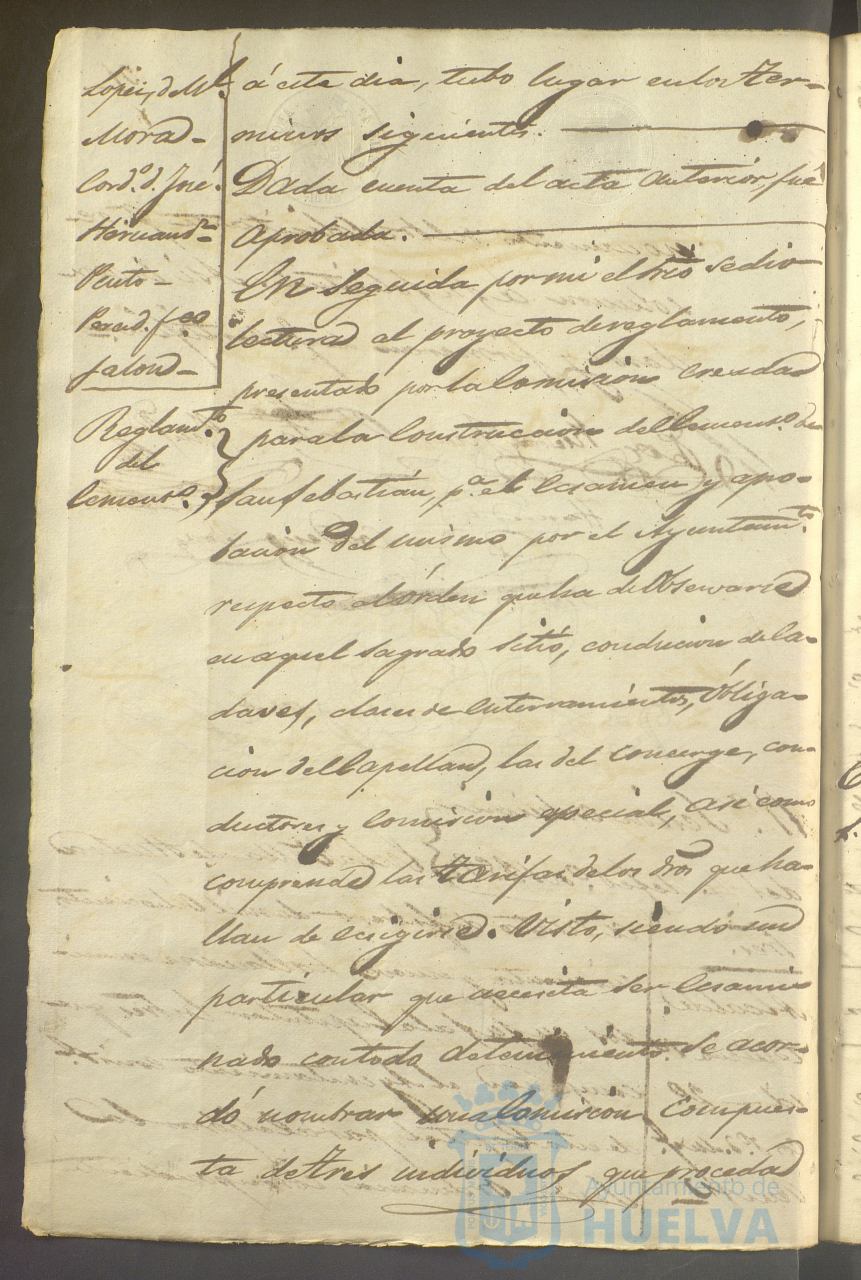 Lopez, d. M.l
Mora=
Cord.o d. José
Hernand.z=
Pinto=
d. f.co
Jalon=
Reglam.to
del
Cementº.
á este dia, tubo lugar en los ter-
minos siguientes.
Dada cuenta del acta anterior, fué
aprobada.
En seguida por mi el Srio se dio
lectura al proyecto de reglamento,
presentado por la Comision creada
para la Construccion del Cementº. de
San Sebastián, pª. el Ecsamen y apro-
bacion del mismo por el Ayuntamto.
respecto al órden que ha de Observarse
en aquel sagrado sitio, conducion de ca-
daves, clases de Enterramientos, óbliga-
cion del Capellan, las del concerge, con-
ductores y Comision especial, asi como
comprende las tarifas de los dros que ha-
llan de ecsigirse. Visto, siendo un
particular que necesita ser Ecsami-
nado con todo detenimiento. se acor-
dó nombrar una Comision compues-
ta de tres individuos que proceda
Ayuntamiento de
HUELVA